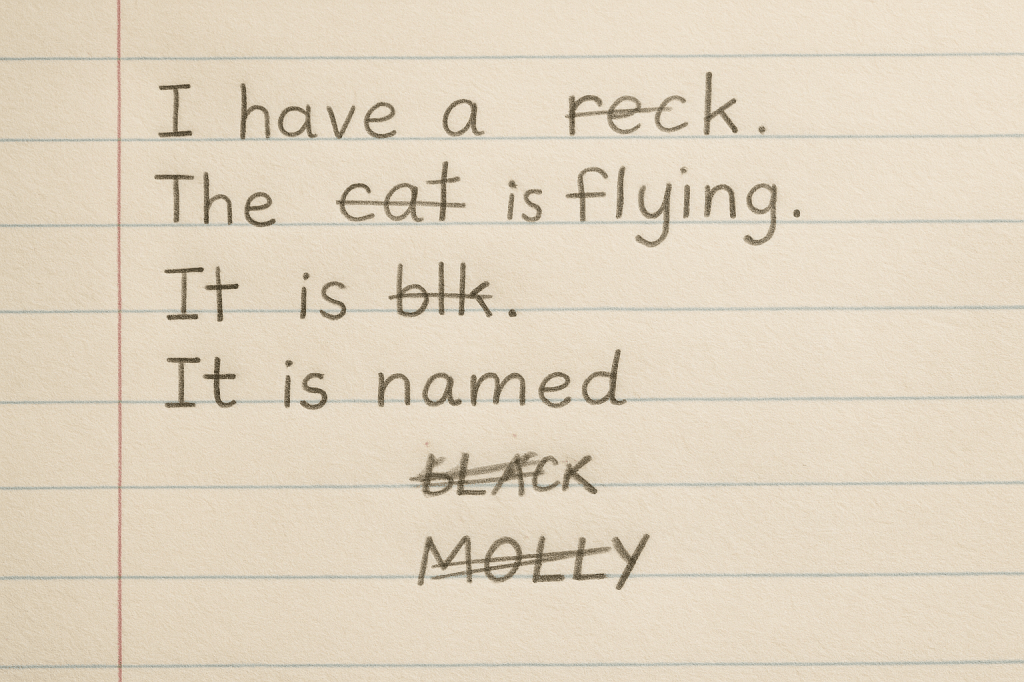 I have a reck.
The cat is flying.
It is blk.
It is named
bLACK
MOLLY